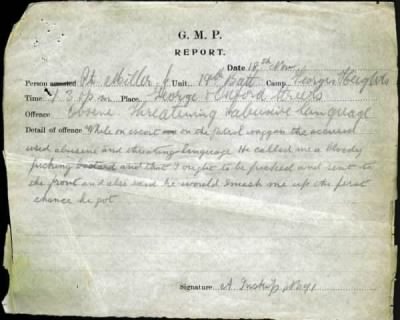 G. M. P.
REPORT.
Date 18th Nov
Person arrested Pte Miller J Unit 19th Batt Camp Georges Heights
Time 3 Place George & Oxford Streets
Offence Obscene threatening & abusive language
Detail of offence While on escort on the patrol waggon the accused
used abusive and threating language He called me a bloody
fucking bastard and that I ought to be fucked and sent to
the front and also said he would smash me up the first
chance he got
Signature A